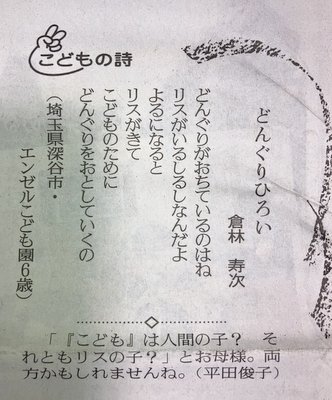 こどもの詩
どんぐりひろい
倉林 寿次
どんぐりがおちているのはね
リスがいるしるしなんだよ
よるになると
リスがきて
こどものために
どんぐりをおとしていくの
（埼玉県深谷市・
エンゼルこども園６歳）
「『こども』は人間の子？　そ
れともリスの子？」とお母様。両
方かもしれませんね。（平田俊子）